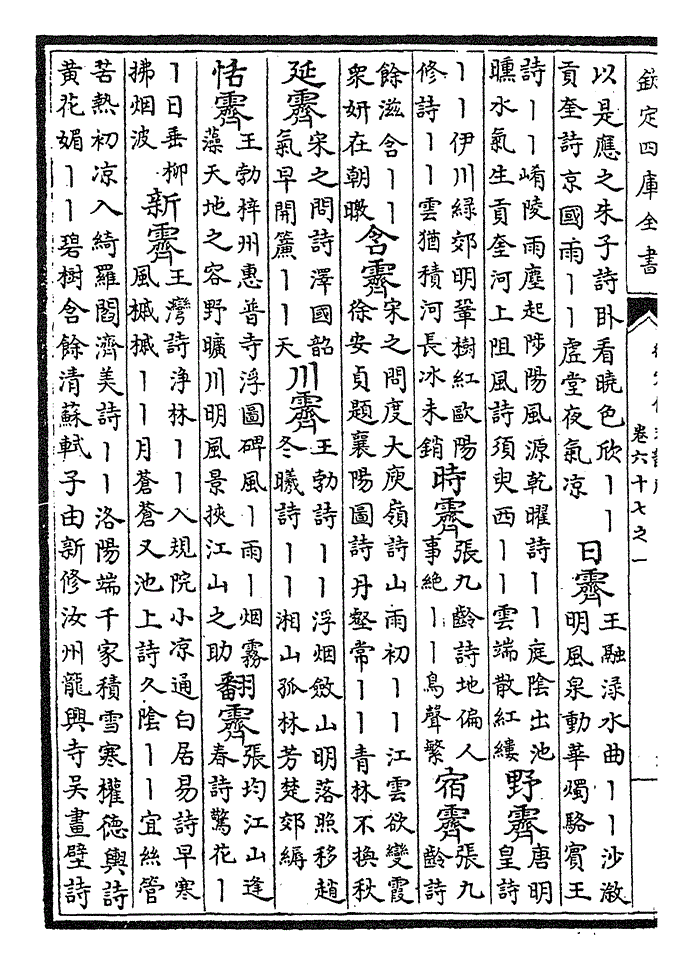 欽定四庫全書
卷六十七之一
以是應之朱子詩卧看曉色欣丨丨
貢奎詩京國雨丨丨虛堂夜氣凉
日霽
王融渌水曲丨丨沙溆
明風泉動華燭駱賓王
詩丨丨崤陵雨塵起陟陽風源乾曜詩丨丨庭陰出池
曛水氣生貢奎河上阻風詩須臾西丨丨雲端散紅縷
野霽
唐明
皇詩
丨丨伊川綠郊明鞏樹紅歐陽
修詩丨丨雲猶積河長冰未銷
時霽
張九齡詩地偏人
事絶丨丨鳥聲繁
宿霽
張九
齡詩
餘滋含丨丨
衆妍在朝暾
含霽
宋之問度大庾嶺詩山雨初丨丨江雲欲變霞
徐安貞題襄陽圖詩丹壑常丨丨青林不換秋
延霽
宋之問詩澤國韶
氣早開簾丨丨天
川霽
王勃詩丨丨浮烟斂山明落照移趙
冬曦詩丨丨湘山孤林芳楚郊縟
恬霽
王勃梓州惠普寺浮圖碑風丨雨丨烟霧
藻天地之容野曠川明風景挾江山之助
翻霽
張均江山逢
春詩驚花丨
丨日垂柳
拂烟波
新霽
王灣詩淨林丨丨入規院小凉通白居易詩早寒
風槭槭丨丨月蒼蒼又池上詩久陰丨丨宜絲管
苦熱初凉入綺羅閻濟美詩丨丨洛陽端千家積雪寒權德輿詩
黄花媚丨丨碧樹含餘清蘇軾子由新修汝州龍興寺吴畫壁詩